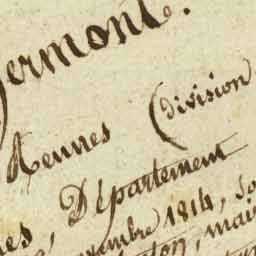 Vermont.
Rennes (division
es, Département
embre 1814, So
ton, mai